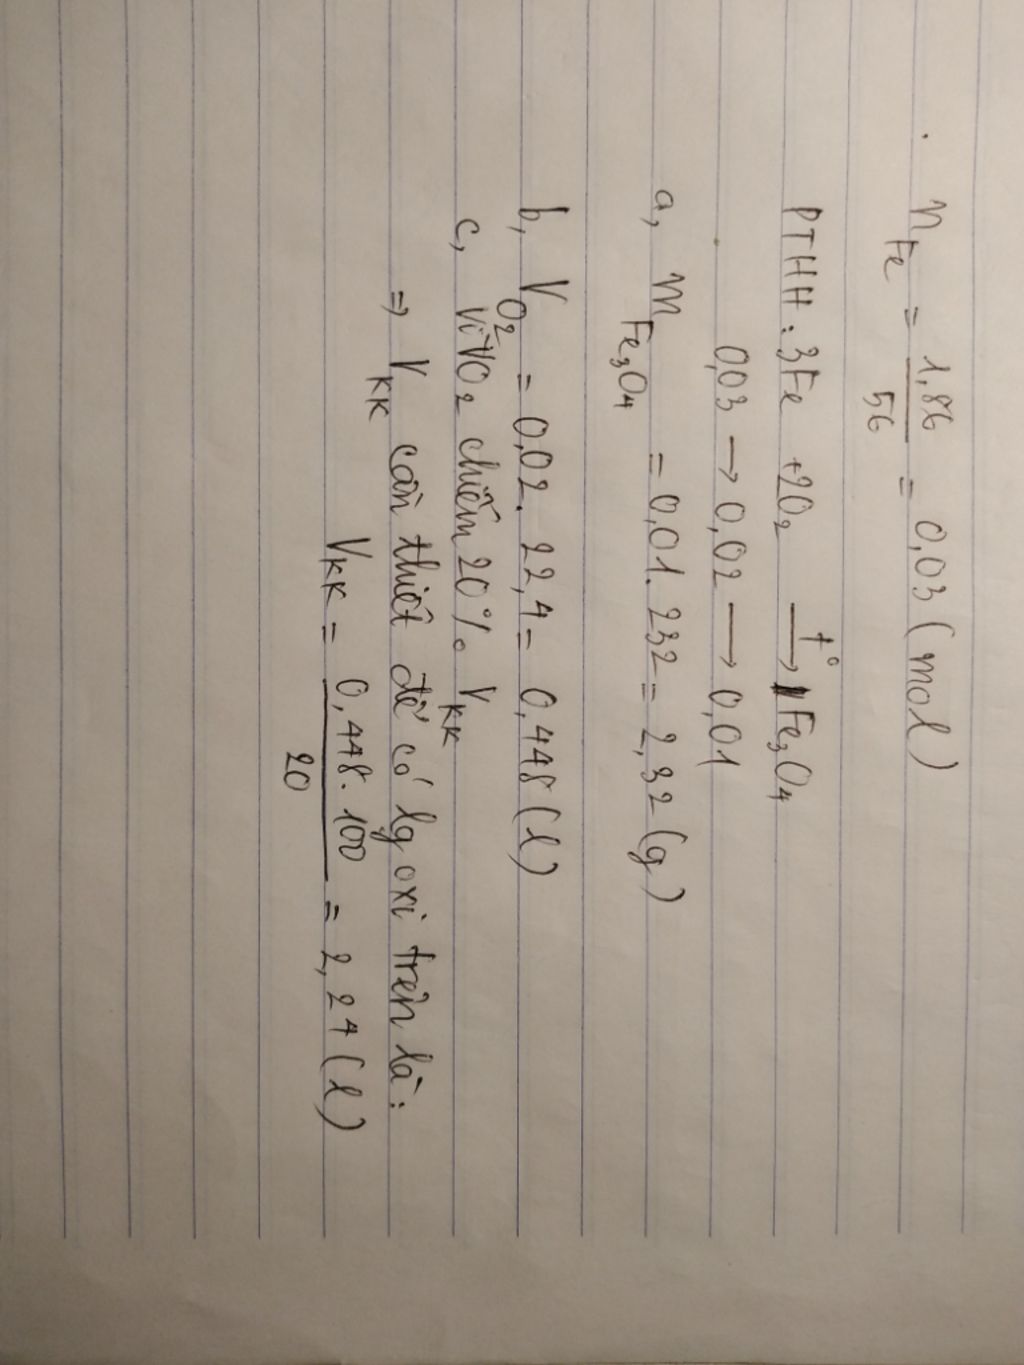 n Fe = 1,86 / 56 = 0,03 (mol)
PTHH : 3Fe + 2O2 t° → 1Fe3O4
0,03 → 0,02 → 0,01
a, m Fe3O4 = 0,01. 232 = 2,32 (g)
b, V O2 = 0,02. 22,4 = 0,448 (l)
c, Vì VO2 chiếm 20% V KK
=> V KK cần thiết để có lg oxi trên là :
V KK = 0,448. 100 / 20 = 2,24 (l)